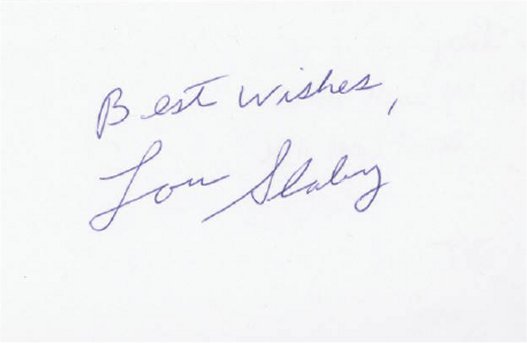 Best Wishes,
Lou Slaby